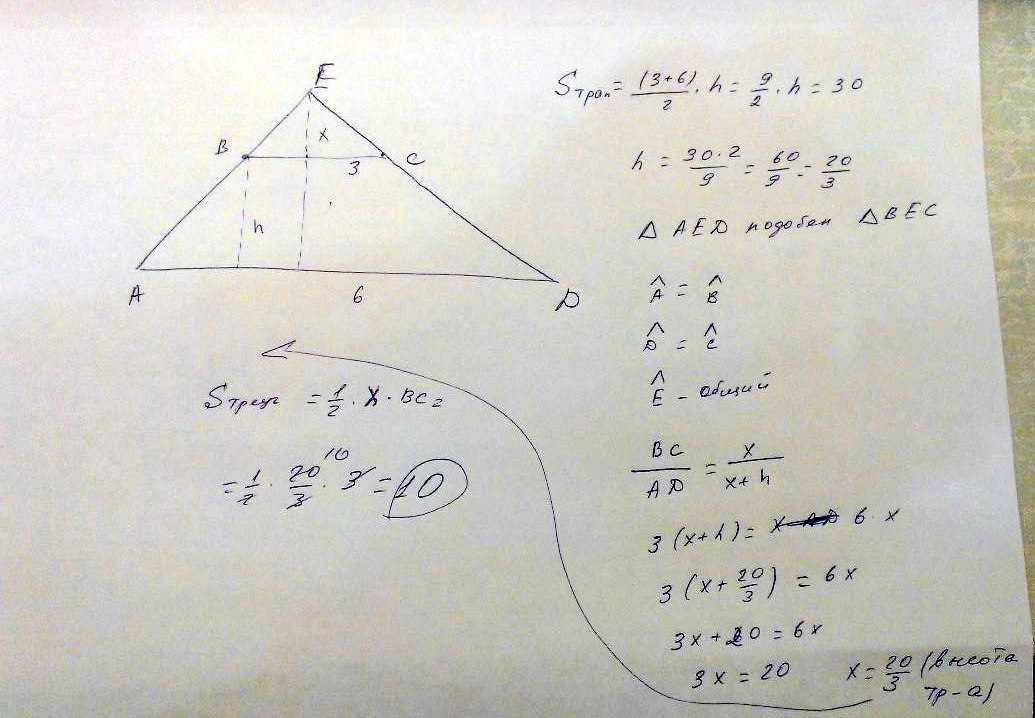 E
B
x
C
3
h
A
6
D
Sтрап = (3+6)/2 · h = 9/2 · h = 30
h = 30·2/9 = 60/9 = 20/3
△ AED подобен △ BEC
Â = B̂
D̂ = Ĉ
Ê - общий
BC/AD = x/(x+h)
3(x+h) = 6·x
3(x + 20/3) = 6x
3x + 20 = 6x
3x = 20 x = 20/3 (высота
тр-а)
Sтреуг = 1/2 · x · BC =
= 1/2 · 20/3 · 3 = 10
10